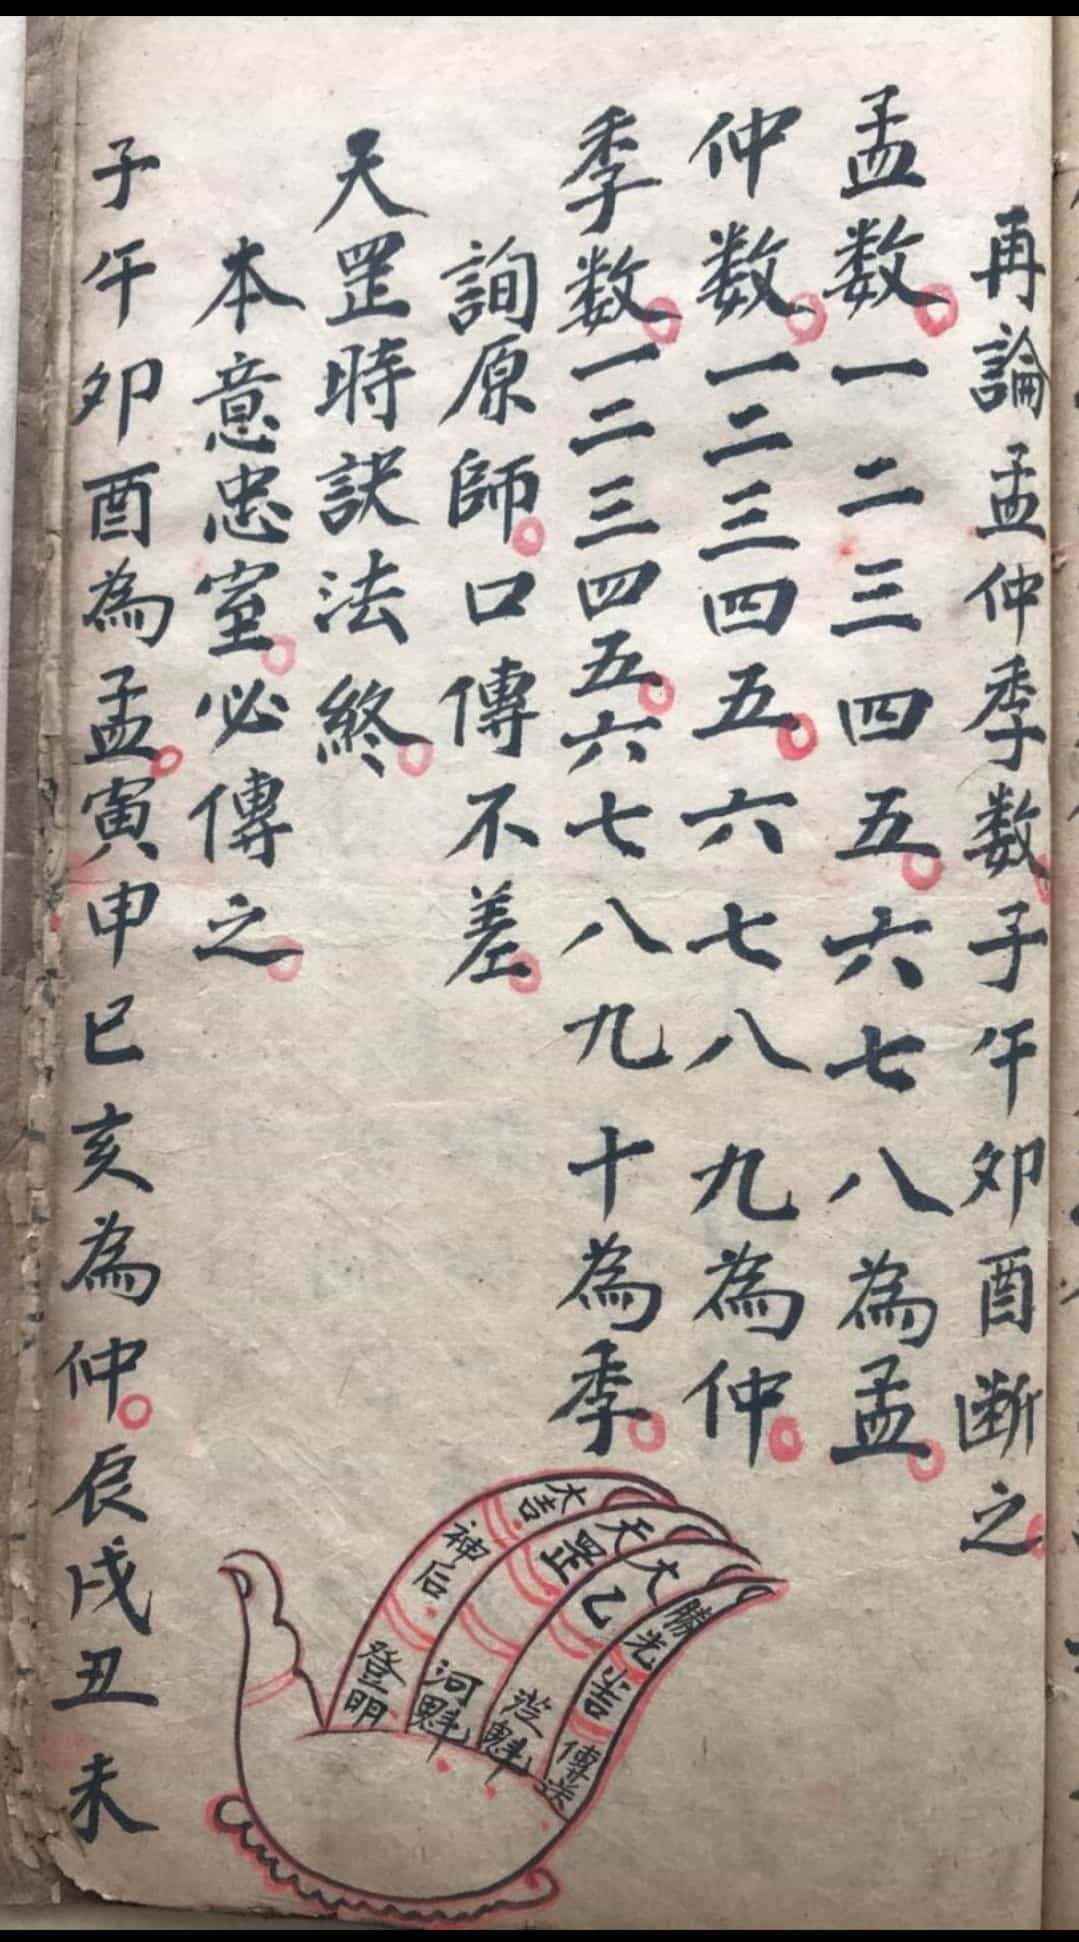 再論孟仲季数子午卯酉断之
孟数一二三四五六七八為孟
仲数一二三四五六七八九為仲
季数一二三四五六七八九十為季
詢原師口傳不差
天罡時訣法終
本意忠室必傳之
子午卯酉為孟寅申巳亥為仲辰戌丑未
大吉
神后
登明
天罡
河魁
太乙
從魁
勝光
小吉
傳送